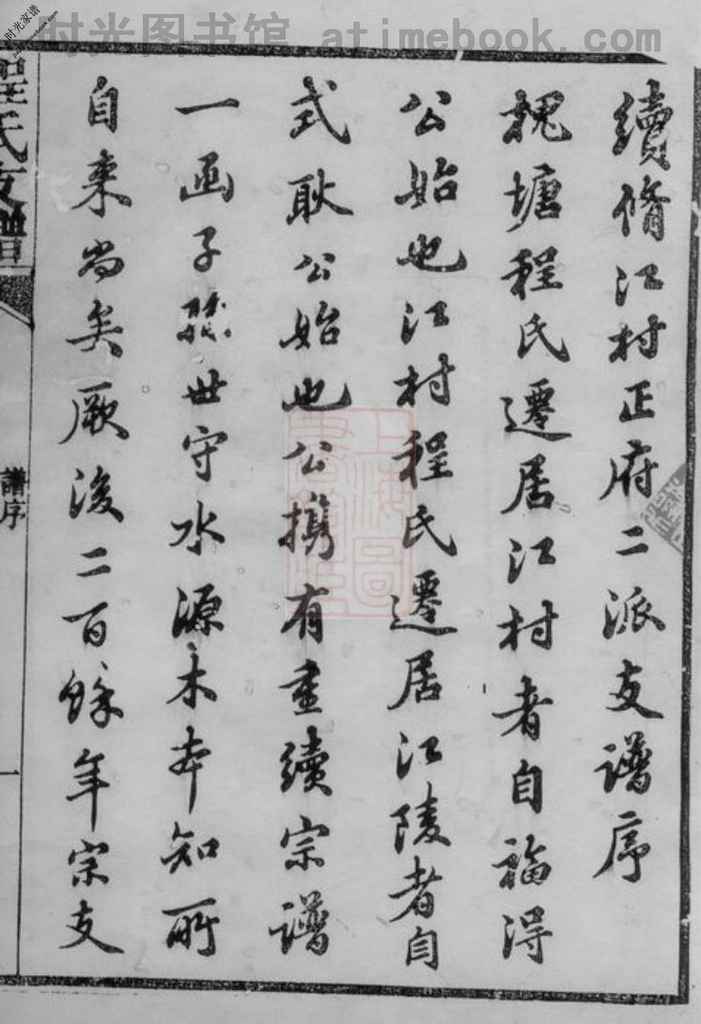 时光图书馆 atimebook.com
时光家谱
續脩江村正府二派支譜序
槐塘程氏遷居江村者自福得
公始也江村程氏遷居江陵者自
式耿公始也公携有重續宗譜
一函子孫世守水源木本知所
自来尚矣厥後二百餘年宗支
程氏支譜
譜序
一